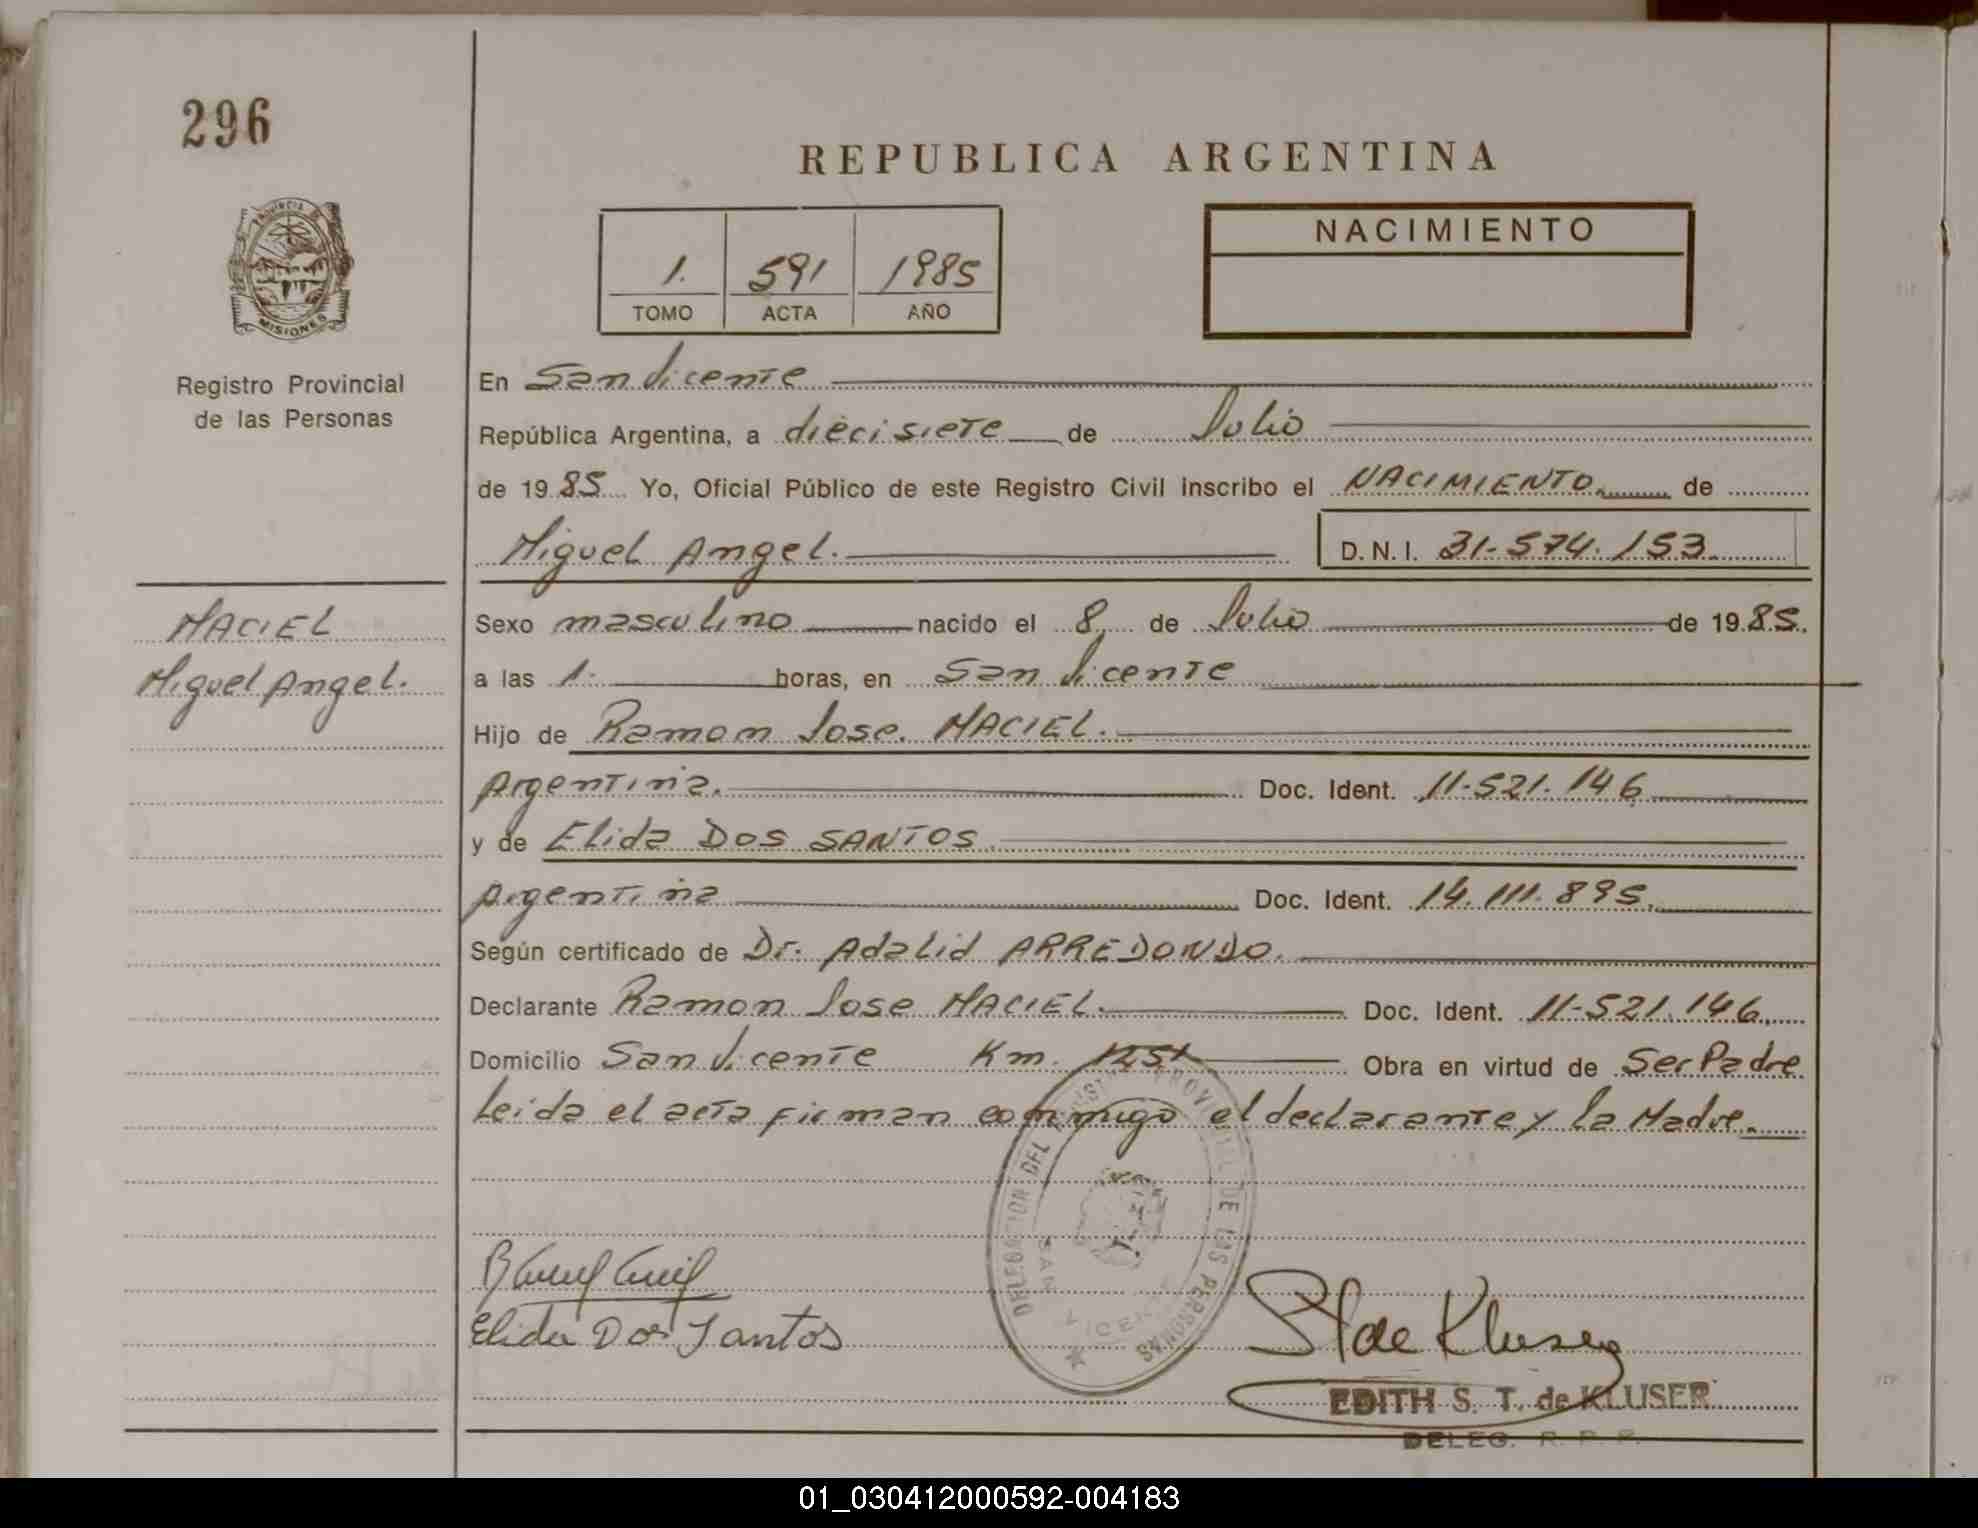 296
REPUBLICA ARGENTINA
NACIMIENTO
1. 591 1985
TOMO ACTA AÑO
PROVINCIA D
MISIONES
Registro Provincial
de las Personas
En San Vicente
República Argentina, a diecisiete de Julio
de 1985 Yo, Oficial Público de este Registro Civil inscribo el NACIMIENTO de
Miguel Angel. D.N.I. 31-574.153
MACIEL
Miguel Angel.
Sexo masculino nacido el 8 de Julio de 1985.
a las 1. horas, en San Vicente
Hijo de Ramon Jose. MACIEL.
Argentina. Doc. Ident. 11-521.146
y de Elida DOS SANTOS
Argentina Doc. Ident. 14.111.895.
Según certificado de Dr. Adalid ARREDONDO.
Declarante Ramon Jose MACIEL. Doc. Ident. 11-521.146
Domicilio San Vicente Km. 1251 Obra en virtud de Ser Padre
Leida el acta firman conmigo el declarante y la Madre.
DELEGACION DEL REGISTRO PROVINCIAL DE LAS PERSONAS
SAN VICENTE
Elida Dos Santos
de Kluser
EDITH S. T. de KLUSER
DELEG. R. P. P.
01_030412000592-004183